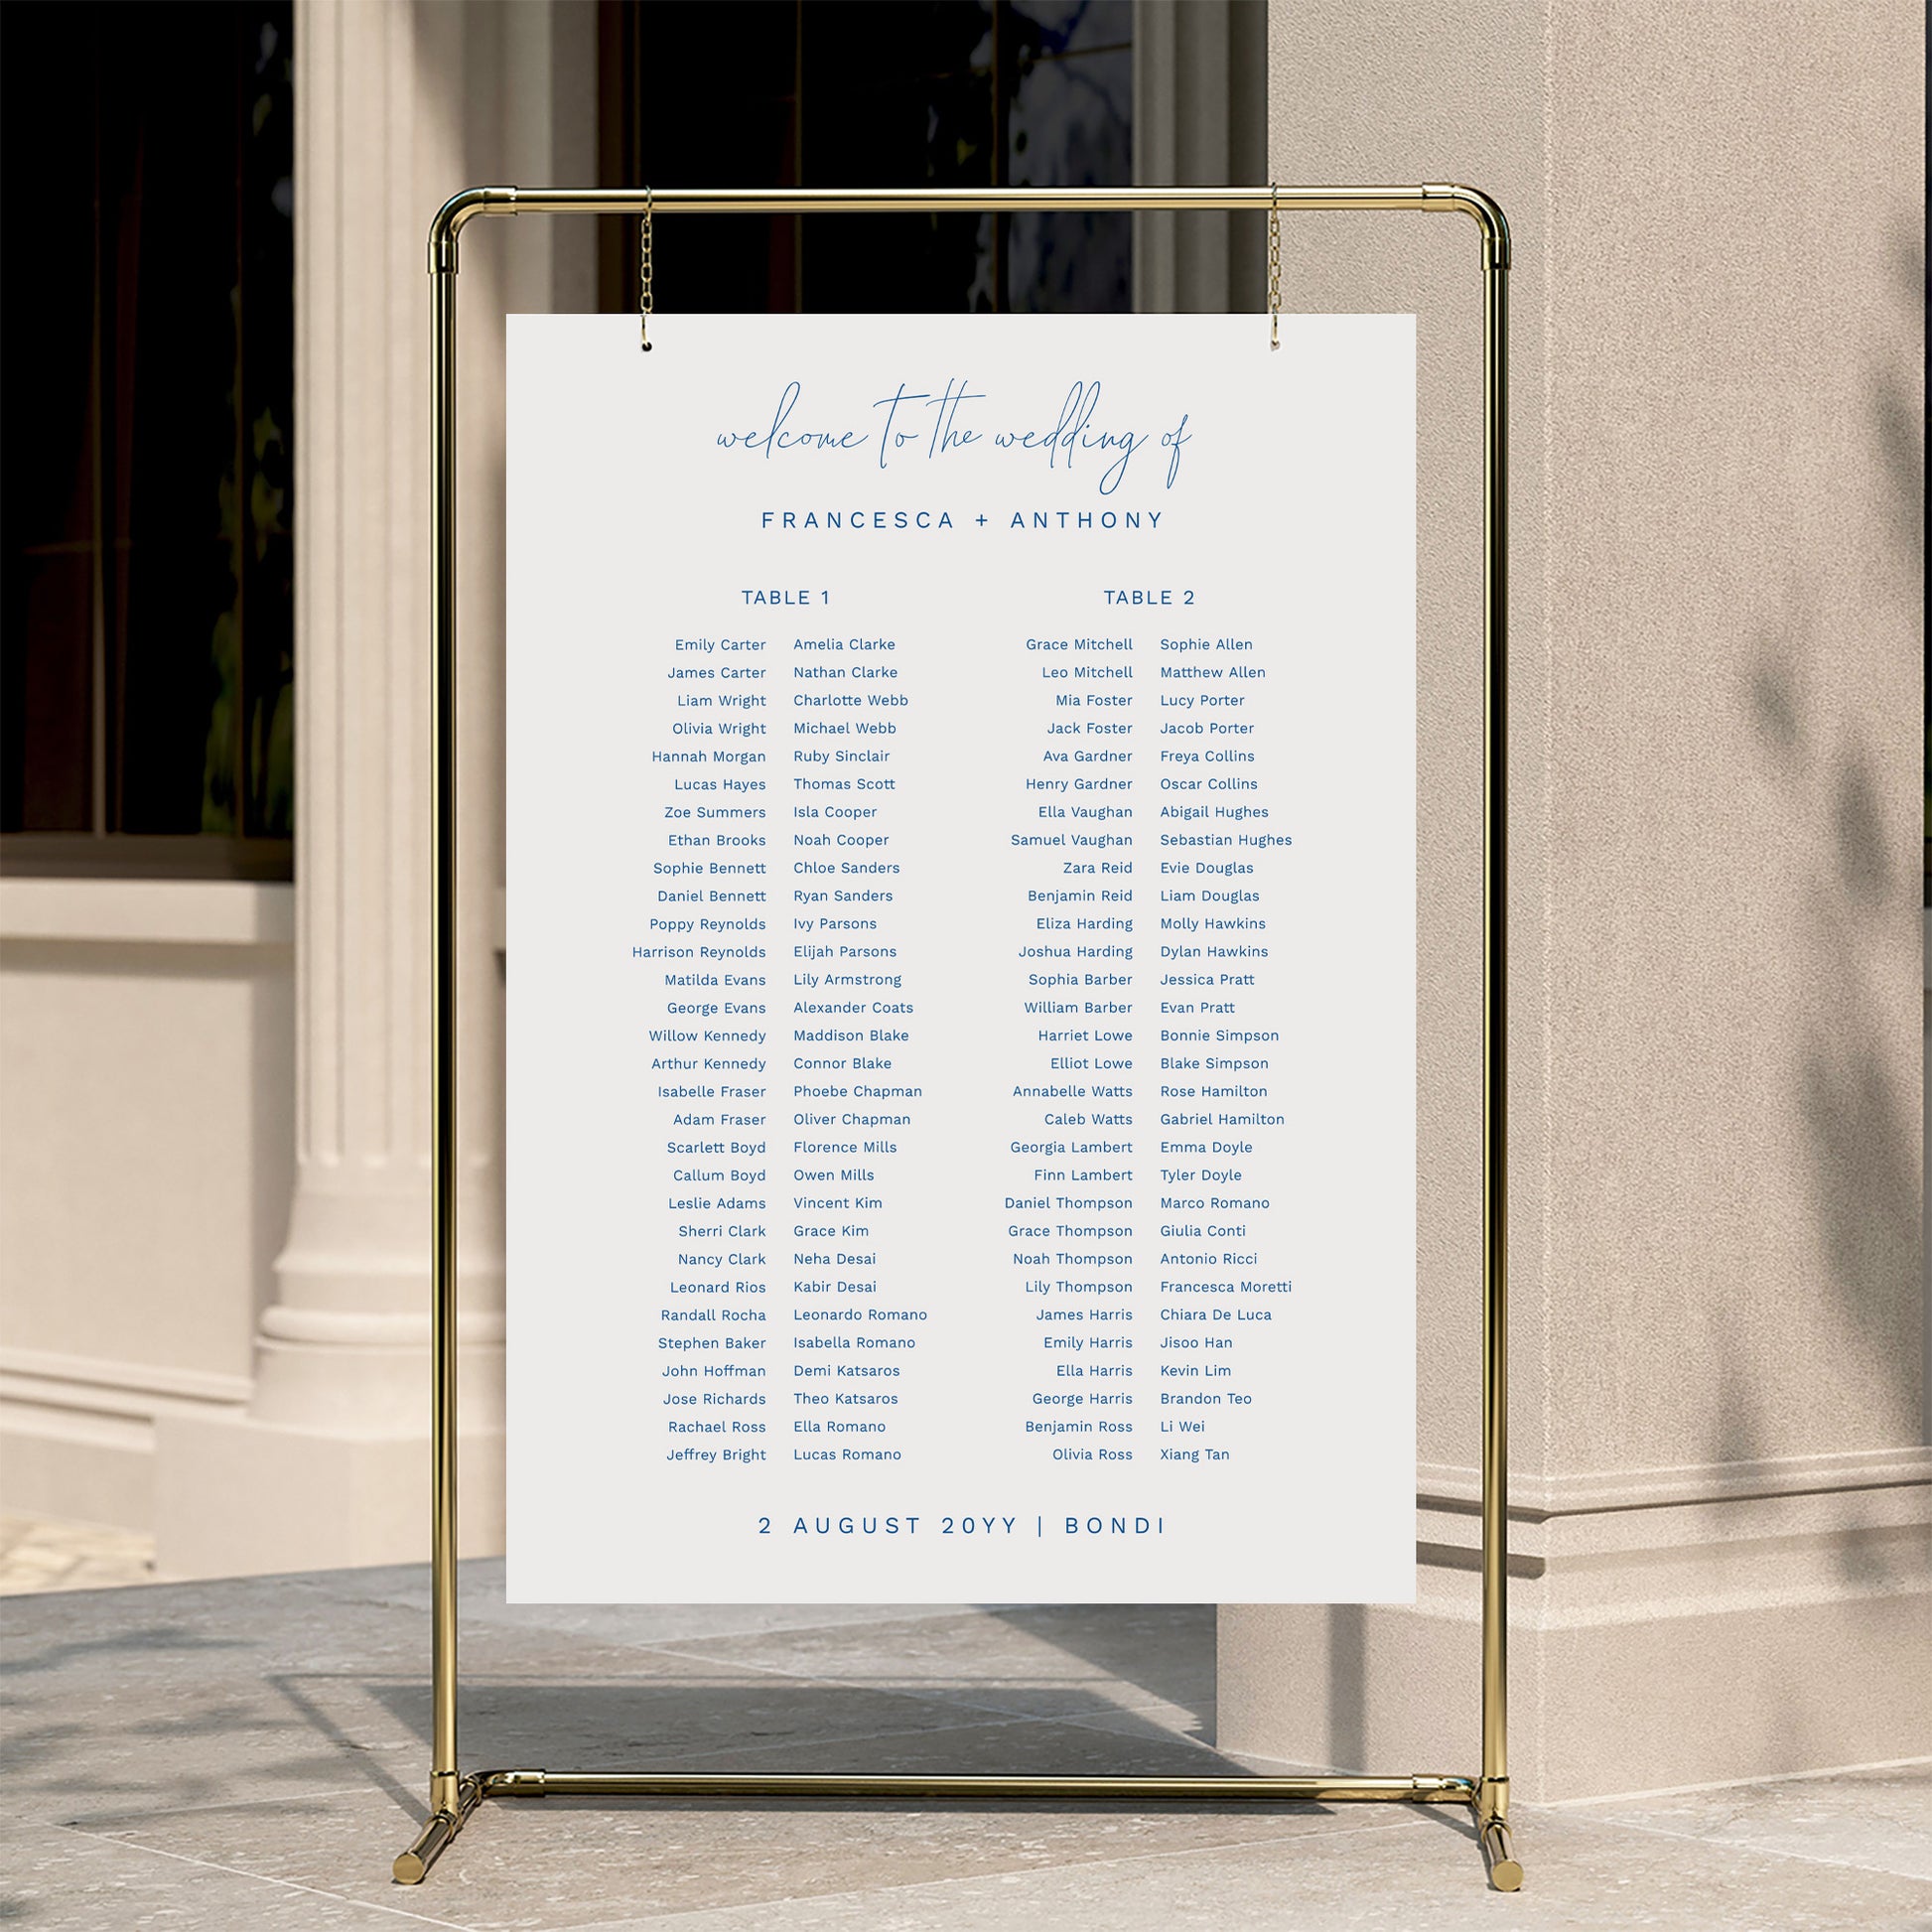 welcome to the wedding of
FRANCESCA + ANTHONY
TABLE 1
Emily Carter Amelia Clarke
James Carter Nathan Clarke
Liam Wright Charlotte Webb
Olivia Wright Michael Webb
Hannah Morgan Ruby Sinclair
Lucas Hayes Thomas Scott
Zoe Summers Isla Cooper
Ethan Brooks Noah Cooper
Sophie Bennett Chloe Sanders
Daniel Bennett Ryan Sanders
Poppy Reynolds Ivy Parsons
Harrison Reynolds Elijah Parsons
Matilda Evans Lily Armstrong
George Evans Alexander Coats
Willow Kennedy Maddison Blake
Arthur Kennedy Connor Blake
Isabelle Fraser Phoebe Chapman
Adam Fraser Oliver Chapman
Scarlett Boyd Florence Mills
Callum Boyd Owen Mills
Leslie Adams Vincent Kim
Sherri Clark Grace Kim
Nancy Clark Neha Desai
Leonard Rios Kabir Desai
Randall Rocha Leonardo Romano
Stephen Baker Isabella Romano
John Hoffman Demi Katsaros
Jose Richards Theo Katsaros
Rachael Ross Ella Romano
Jeffrey Bright Lucas Romano
TABLE 2
Grace Mitchell Sophie Allen
Leo Mitchell Matthew Allen
Mia Foster Lucy Porter
Jack Foster Jacob Porter
Ava Gardner Freya Collins
Henry Gardner Oscar Collins
Ella Vaughan Abigail Hughes
Samuel Vaughan Sebastian Hughes
Zara Reid Evie Douglas
Benjamin Reid Liam Douglas
Eliza Harding Molly Hawkins
Joshua Harding Dylan Hawkins
Sophia Barber Jessica Pratt
William Barber Evan Pratt
Harriet Lowe Bonnie Simpson
Elliot Lowe Blake Simpson
Annabelle Watts Rose Hamilton
Caleb Watts Gabriel Hamilton
Georgia Lambert Emma Doyle
Finn Lambert Tyler Doyle
Daniel Thompson Marco Romano
Grace Thompson Giulia Conti
Noah Thompson Antonio Ricci
Lily Thompson Francesca Moretti
James Harris Chiara De Luca
Emily Harris Jisoo Han
Ella Harris Kevin Lim
George Harris Brandon Teo
Benjamin Ross Li Wei
Olivia Ross Xiang Tan
2 AUGUST 20YY | BONDI